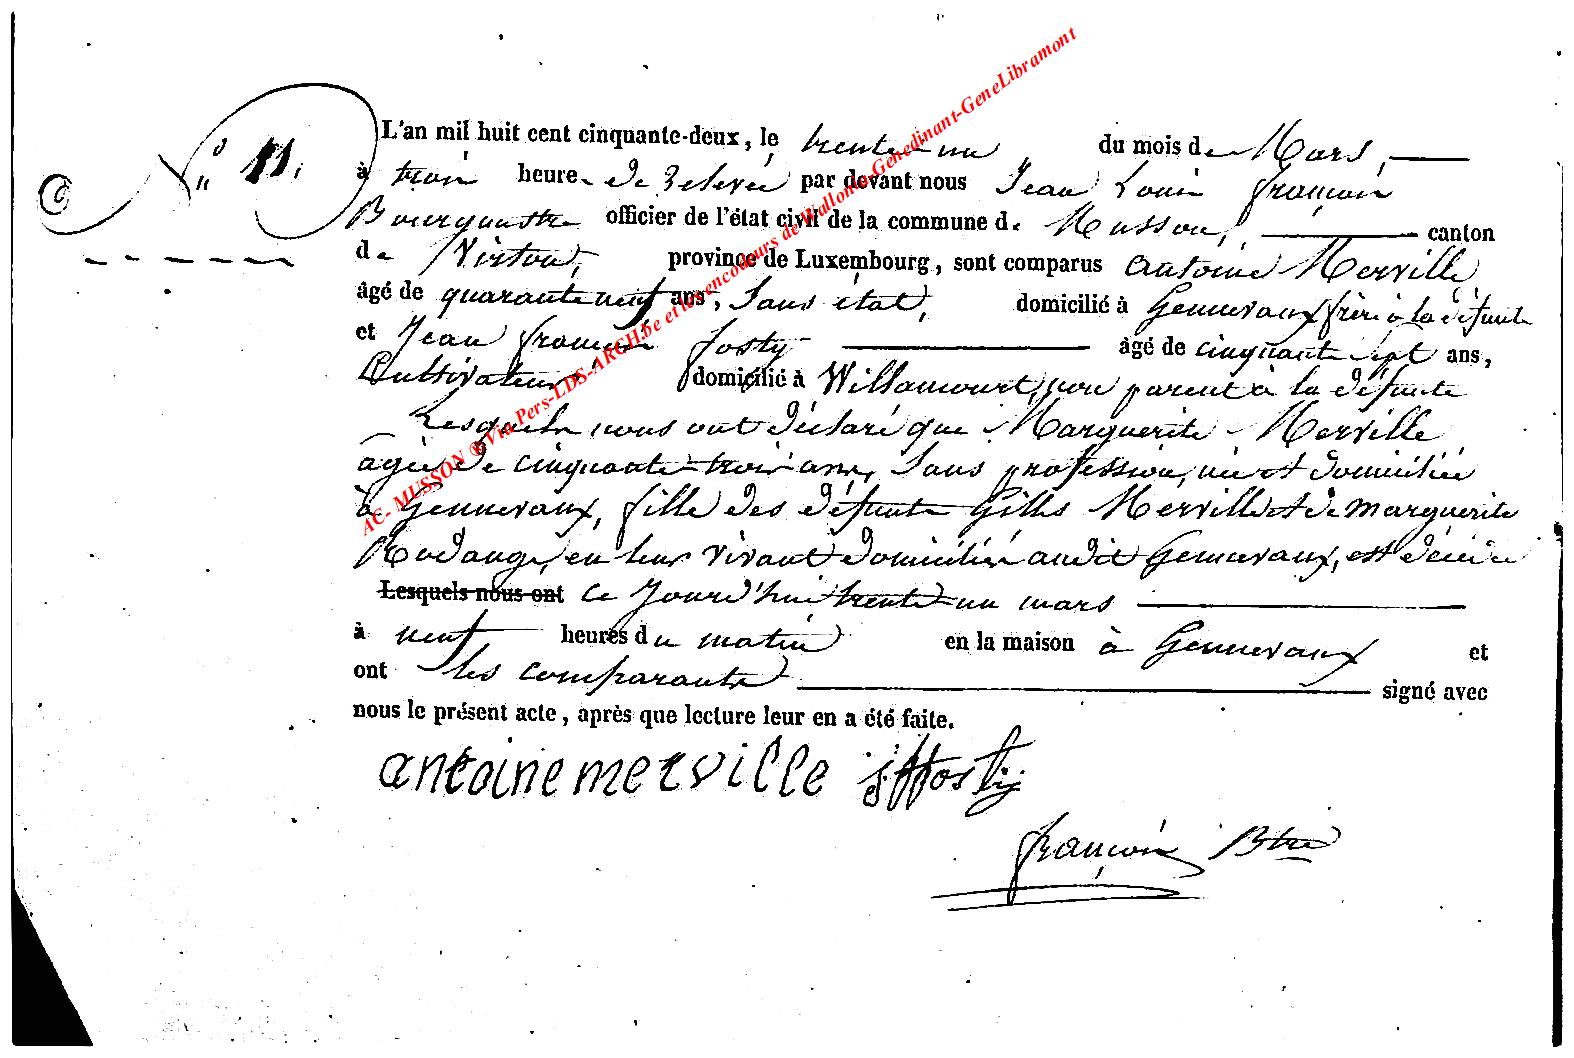 N° 11.
L'an mil huit cent cinquante-deux, le trente-un du mois de Mars,
à trois heures de relevée par devant nous Jean Louis François
Bourguestre officier de l'état civil de la commune de Musson, canton
de Virton, province de Luxembourg, sont comparus Antoine Merville
âgé de quarante neuf ans, Sans état, domicilié à Gennevaux frère à la défunte
et Jean François Josty âgé de cinquante sept ans,
Cultivateur domicilié à Willancourt, non parent à la défunte
Lesquels nous ont déclaré que Marguerite Merville
agée de cinquante-trois ans, Sans profession, née et domiciliée
à Gennevaux, fille des défunts Gilles Merville et de Marguerite
Rodange, en leur vivant domiciliés audit Gennevaux, est décédée
Lesquels nous ont ce jourd'hui trente-un mars
à neuf heures du matin en la maison à Gennevaux et
ont les comparants signé avec
nous le présent acte, après que lecture leur en a été faite.
antoine merville jfJosty
françois Btre
AC- MUSSON © Via Pers-LDS-ARCH.be et les encodeurs de Wallonia-Genedinant-GeneLibramont